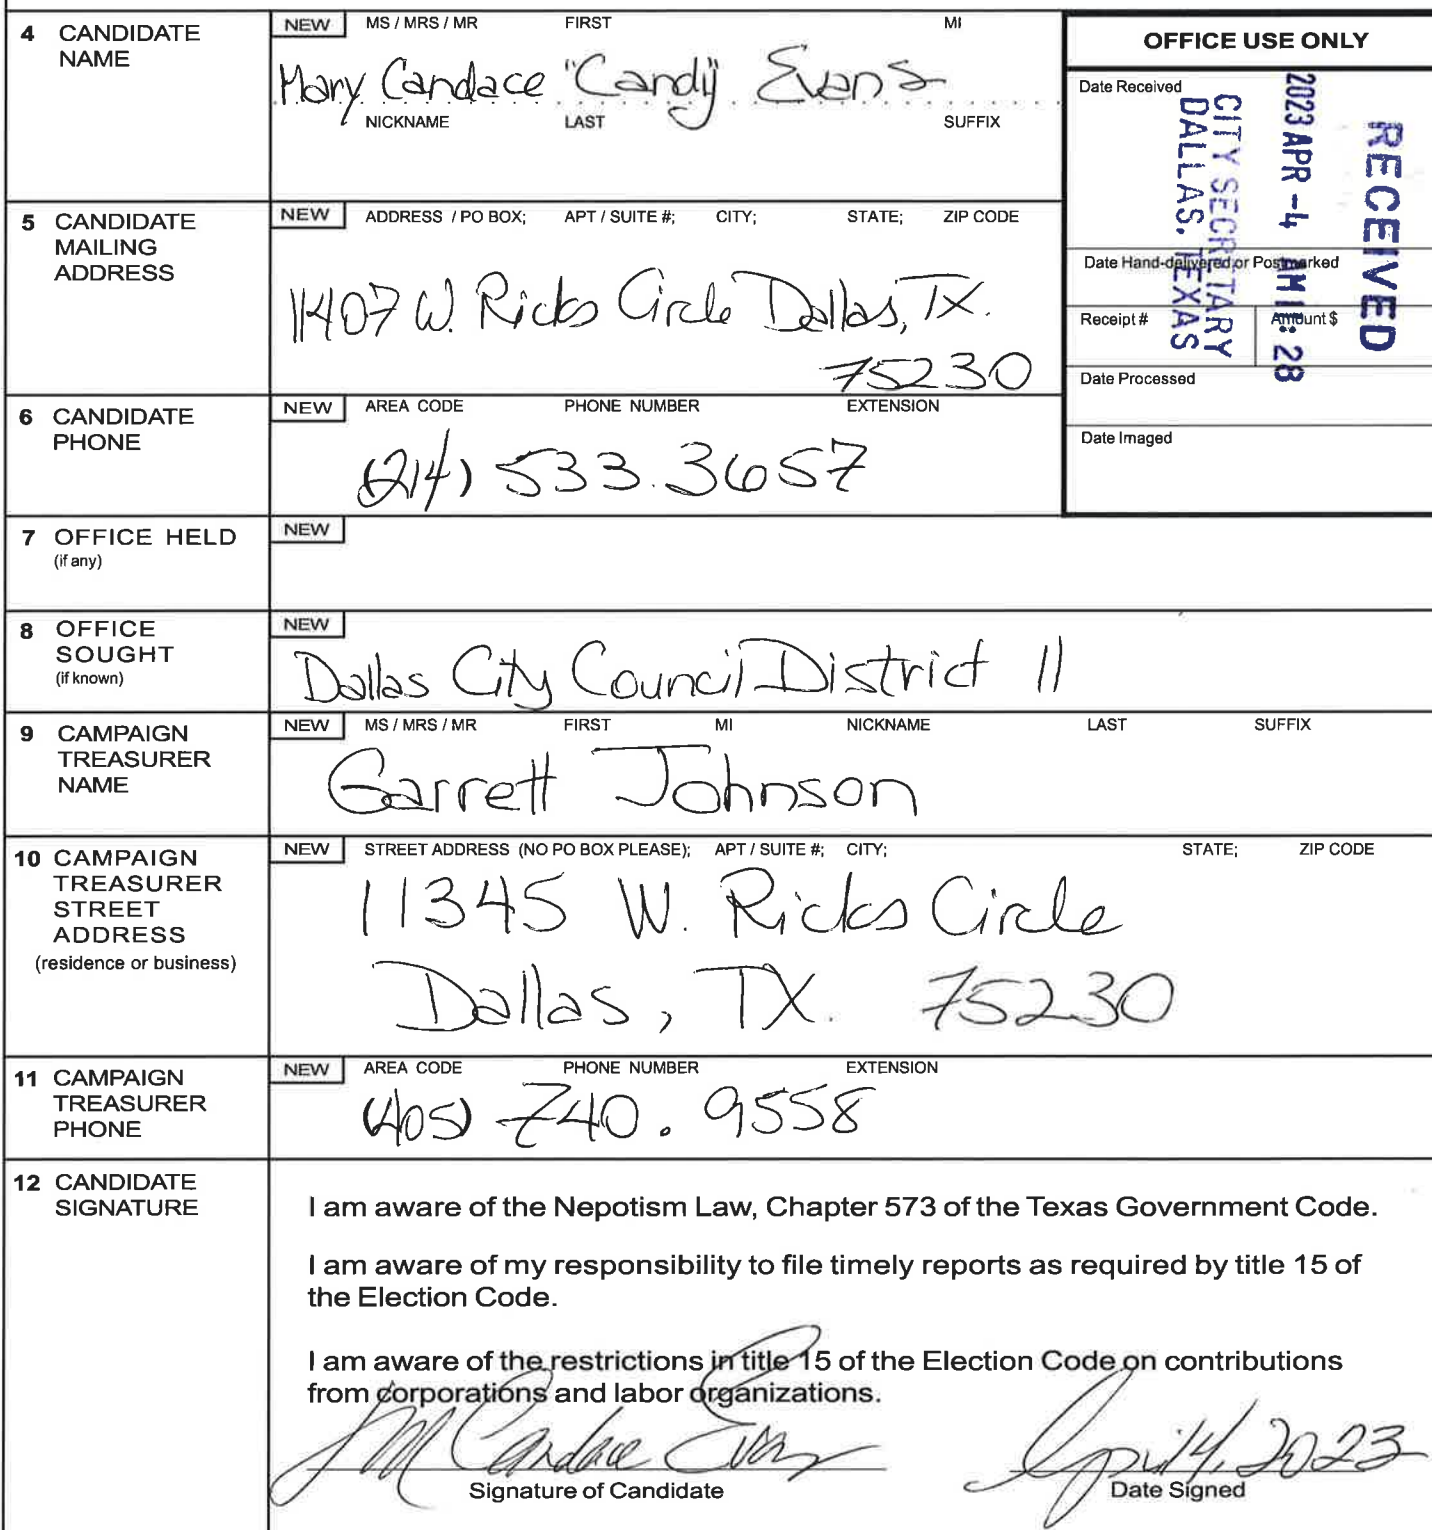 4 CANDIDATE NAME
NEW MS / MRS / MR FIRST MI
Mary Candace "Candy" Evans
NICKNAME LAST SUFFIX
OFFICE USE ONLY
Date Received
RECEIVED
2023 APR -4 AM 11: 28
CITY SECRETARY
DALLAS, TEXAS
Date Hand-delivered or Postmarked
Receipt # Amount $
Date Processed
Date Imaged
5 CANDIDATE MAILING ADDRESS
NEW ADDRESS / PO BOX; APT / SUITE #; CITY; STATE; ZIP CODE
11407 W. Ricks Circle Dallas, TX.
75230
6 CANDIDATE PHONE
NEW AREA CODE PHONE NUMBER EXTENSION
(214) 533.3657
7 OFFICE HELD
(if any)
NEW
8 OFFICE SOUGHT
(if known)
NEW
Dallas City Council District 11
9 CAMPAIGN TREASURER NAME
NEW MS / MRS / MR FIRST MI NICKNAME LAST SUFFIX
Garrett Johnson
10 CAMPAIGN TREASURER STREET ADDRESS
(residence or business)
NEW STREET ADDRESS (NO PO BOX PLEASE); APT / SUITE #; CITY; STATE; ZIP CODE
11345 W. Ricks Circle
Dallas, TX. 75230
11 CAMPAIGN TREASURER PHONE
NEW AREA CODE PHONE NUMBER EXTENSION
(405) 740.9558
12 CANDIDATE SIGNATURE
I am aware of the Nepotism Law, Chapter 573 of the Texas Government Code.
I am aware of my responsibility to file timely reports as required by title 15 of
the Election Code.
I am aware of the restrictions in title 15 of the Election Code on contributions
from corporations and labor organizations.
M Candace Evans April 4, 2023
Signature of Candidate Date Signed